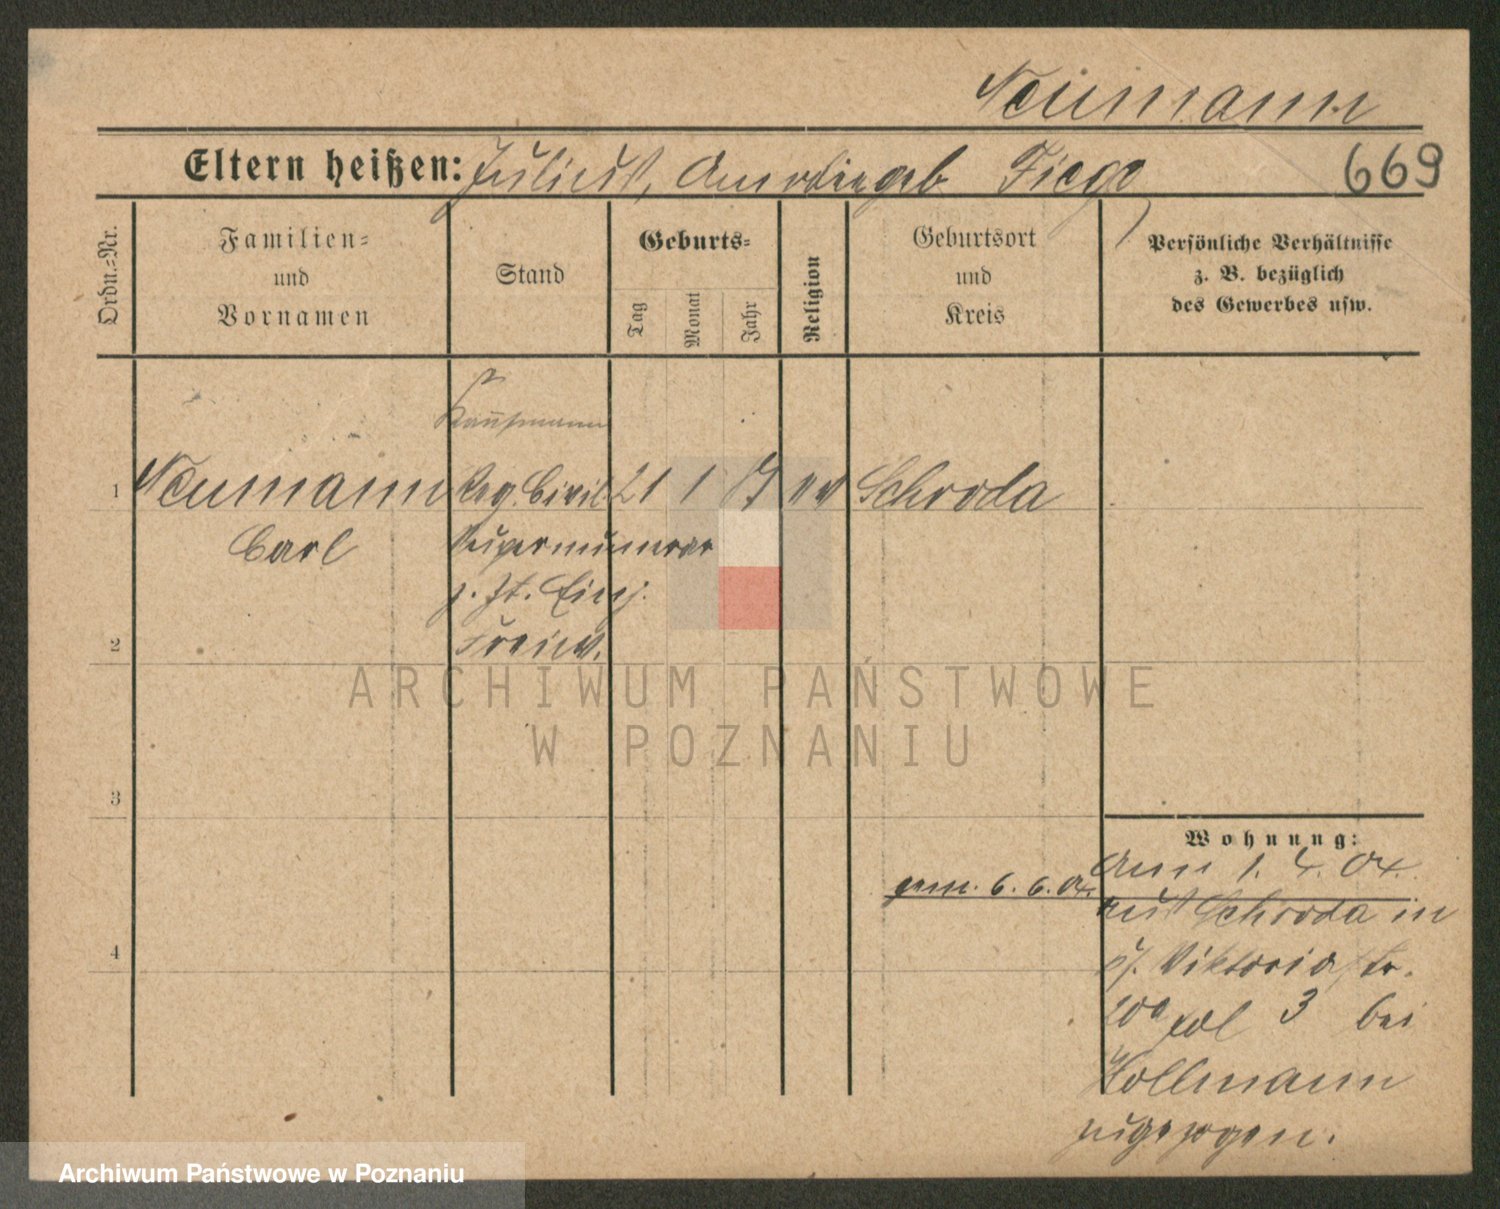 Neumann
Eltern heißen: Julius, geb Fiege
669
Ordn.-Nr.
Familien-
und
Vornamen
Stand
Geburts-
Tag
Monat
Jahr
Religion
Geburtsort
und
Kreis
Persönliche Verhältnisse
z. B. bezüglich
des Gewerbes usw.
Kaufmann
1 Neumann Reg. Civil 21 1 Schroda
Carl Supernumerar
z. Zt. Einj.
2 Freiw.
ARCHIWUM PAŃSTWOWE
W POZNANIU
3
Wohnung:
1. 4. 04.
gem. 6. 6. 04.
aus Schroda in
4
Viktoriastr.
3 bei
Hollmann
zugezogen.
Archiwum Państwowe w Poznaniu